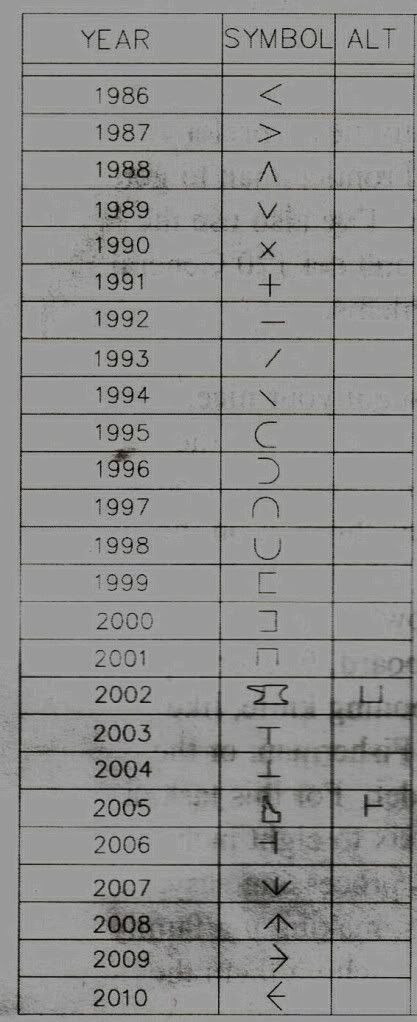 YEAR SYMBOL ALT
1986 <
1987 >
1988 ∧
1989 ∨
1990 ×
1991 +
1992 —
1993 /
1994 \
1995 ⊂
1996 ⊃
1997 ∩
1998 ∪
1999
2000
2001
2002
2003
2004 ⊥
2005
2006
2007 ↓
2008 ↑
2009 →
2010 ←